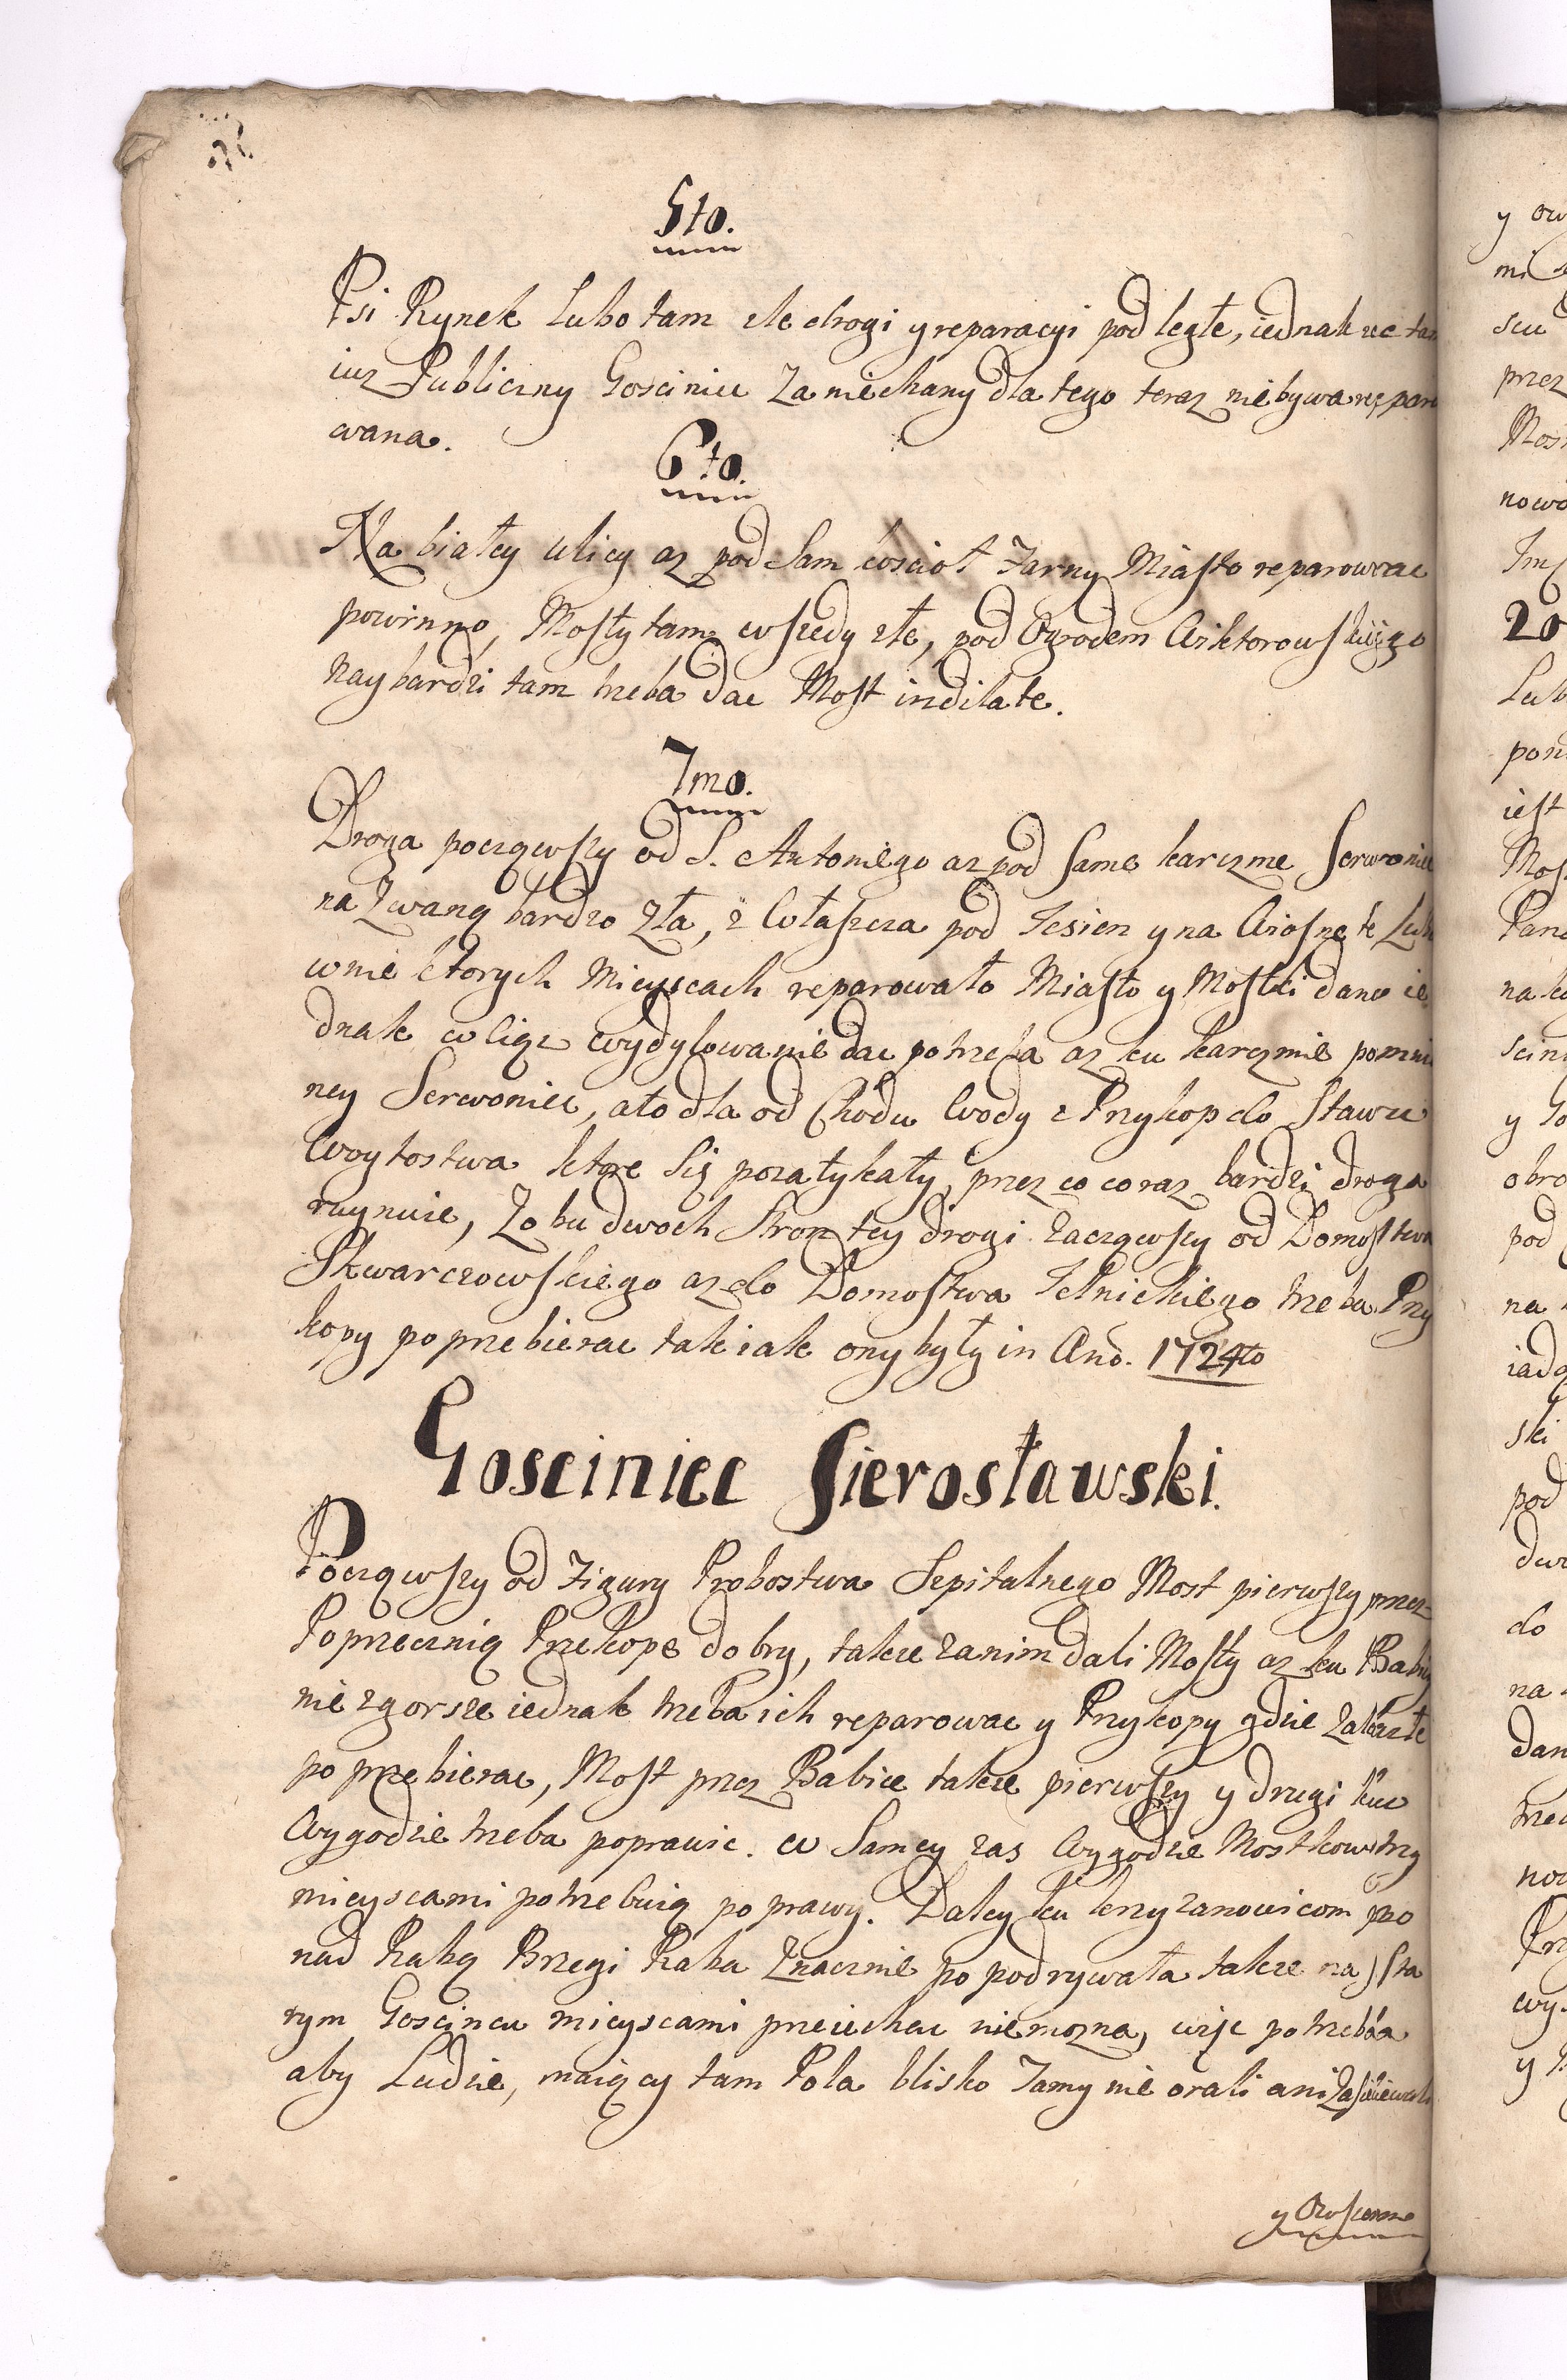 5to.
Psi Rynek Lubo tam złe drogi y reparacyi pod ległe, iednak ze tam
iuz Publiczny Gosciniec Zaniechany dla tego teraz niebywa repara
wana.
6to.
Na białey ulicy az pod Sam kosciol Farny Miasto reparowac
powinno, Mosty tam wszedy złe, pod Ogrodem Wiktorowskiego
Naybardzi tam trzeba dac Most indilate.
7mo.
Droga począwszy od S. Antoniego az pod same karczme Serwoniec
na Zwaną bardzo Zła, z Właszcza pod Iesien y na Wiosne te Lub
w nie ktorych Mieyscach reparowało Miasto y Mostki dano ie
dnak w ligz wydylowanie dac potrzeba az ku karczmie pomni
ney Serwoniec, a to dla od Chodu Wody z Przykop do Stawu
Woytostwa ktore się pozatykały, przez co coraz bardzi droga
ruynuie, Zobu dwoch Stron tey drogi zacząwszy od Domostwa
Skwarczowskiego az do Domostwa Telnickiego trzeba Przy
kopy poprzebierac tak iak ony były in Ano. 1724to
Gosciniec Sierosławski.
Począwszy od Figury Probostwa Szpitalnego Most pierwszy przez
Poprzecznią Przekope dobry, takze zanim dali Mosty az ku Babicy
nie zgorsze iednak trzeba ich reparowac y Przykopy gdzie
poprzebierac, Most przez Babice takze pierwszy y drugi ku
Wygodzie trzeba poprawic. w Samey zas Wygodzie Mostkow trzy
mieyscami potrzebuią poprawy. Daley ku krzyzanowicom po
nad Rabą Brzegi Raba Znacznie popodrywała takze na Sta
rym Goscincu mieyscami przeiechac niemozna, wiſc potrzeba
aby Ludzie, maiący tam Pola blisko Tamy nie orali ani Zasiewali
y Owszem
y ow
mi
scu
przez
Mos
nowo
Im
20
Lub
pon
iest
Most
Pana
na ko
scin
y Go
obro
pod
na
iadą
ski
pod
dwo
do
na
dan
trze
now
Prz
wy
y